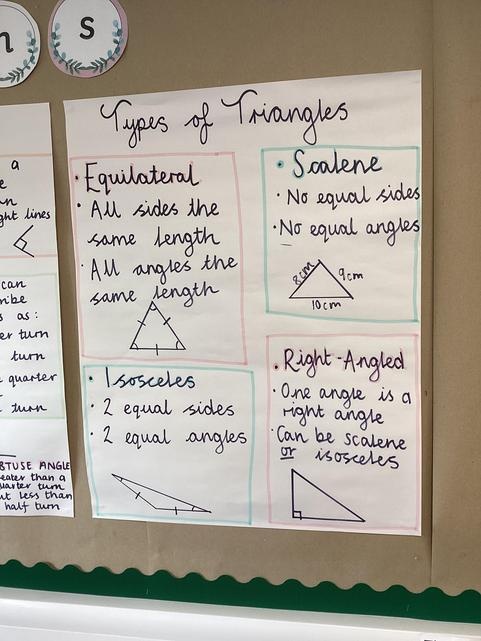 s
Types of Triangles
• Equilateral
• All sides the
same length
• All angles the
same length
• Scalene
• No equal sides
• No equal angles
8cm
9cm
10cm
• Isosceles
• 2 equal sides
• 2 equal angles
• Right-Angled
• One angle is a
right angle
• Can be scalene
or isosceles
a
lines
can
as:
turn
turn
quarter
turn
ANGLE
than a
turn
less than
half turn